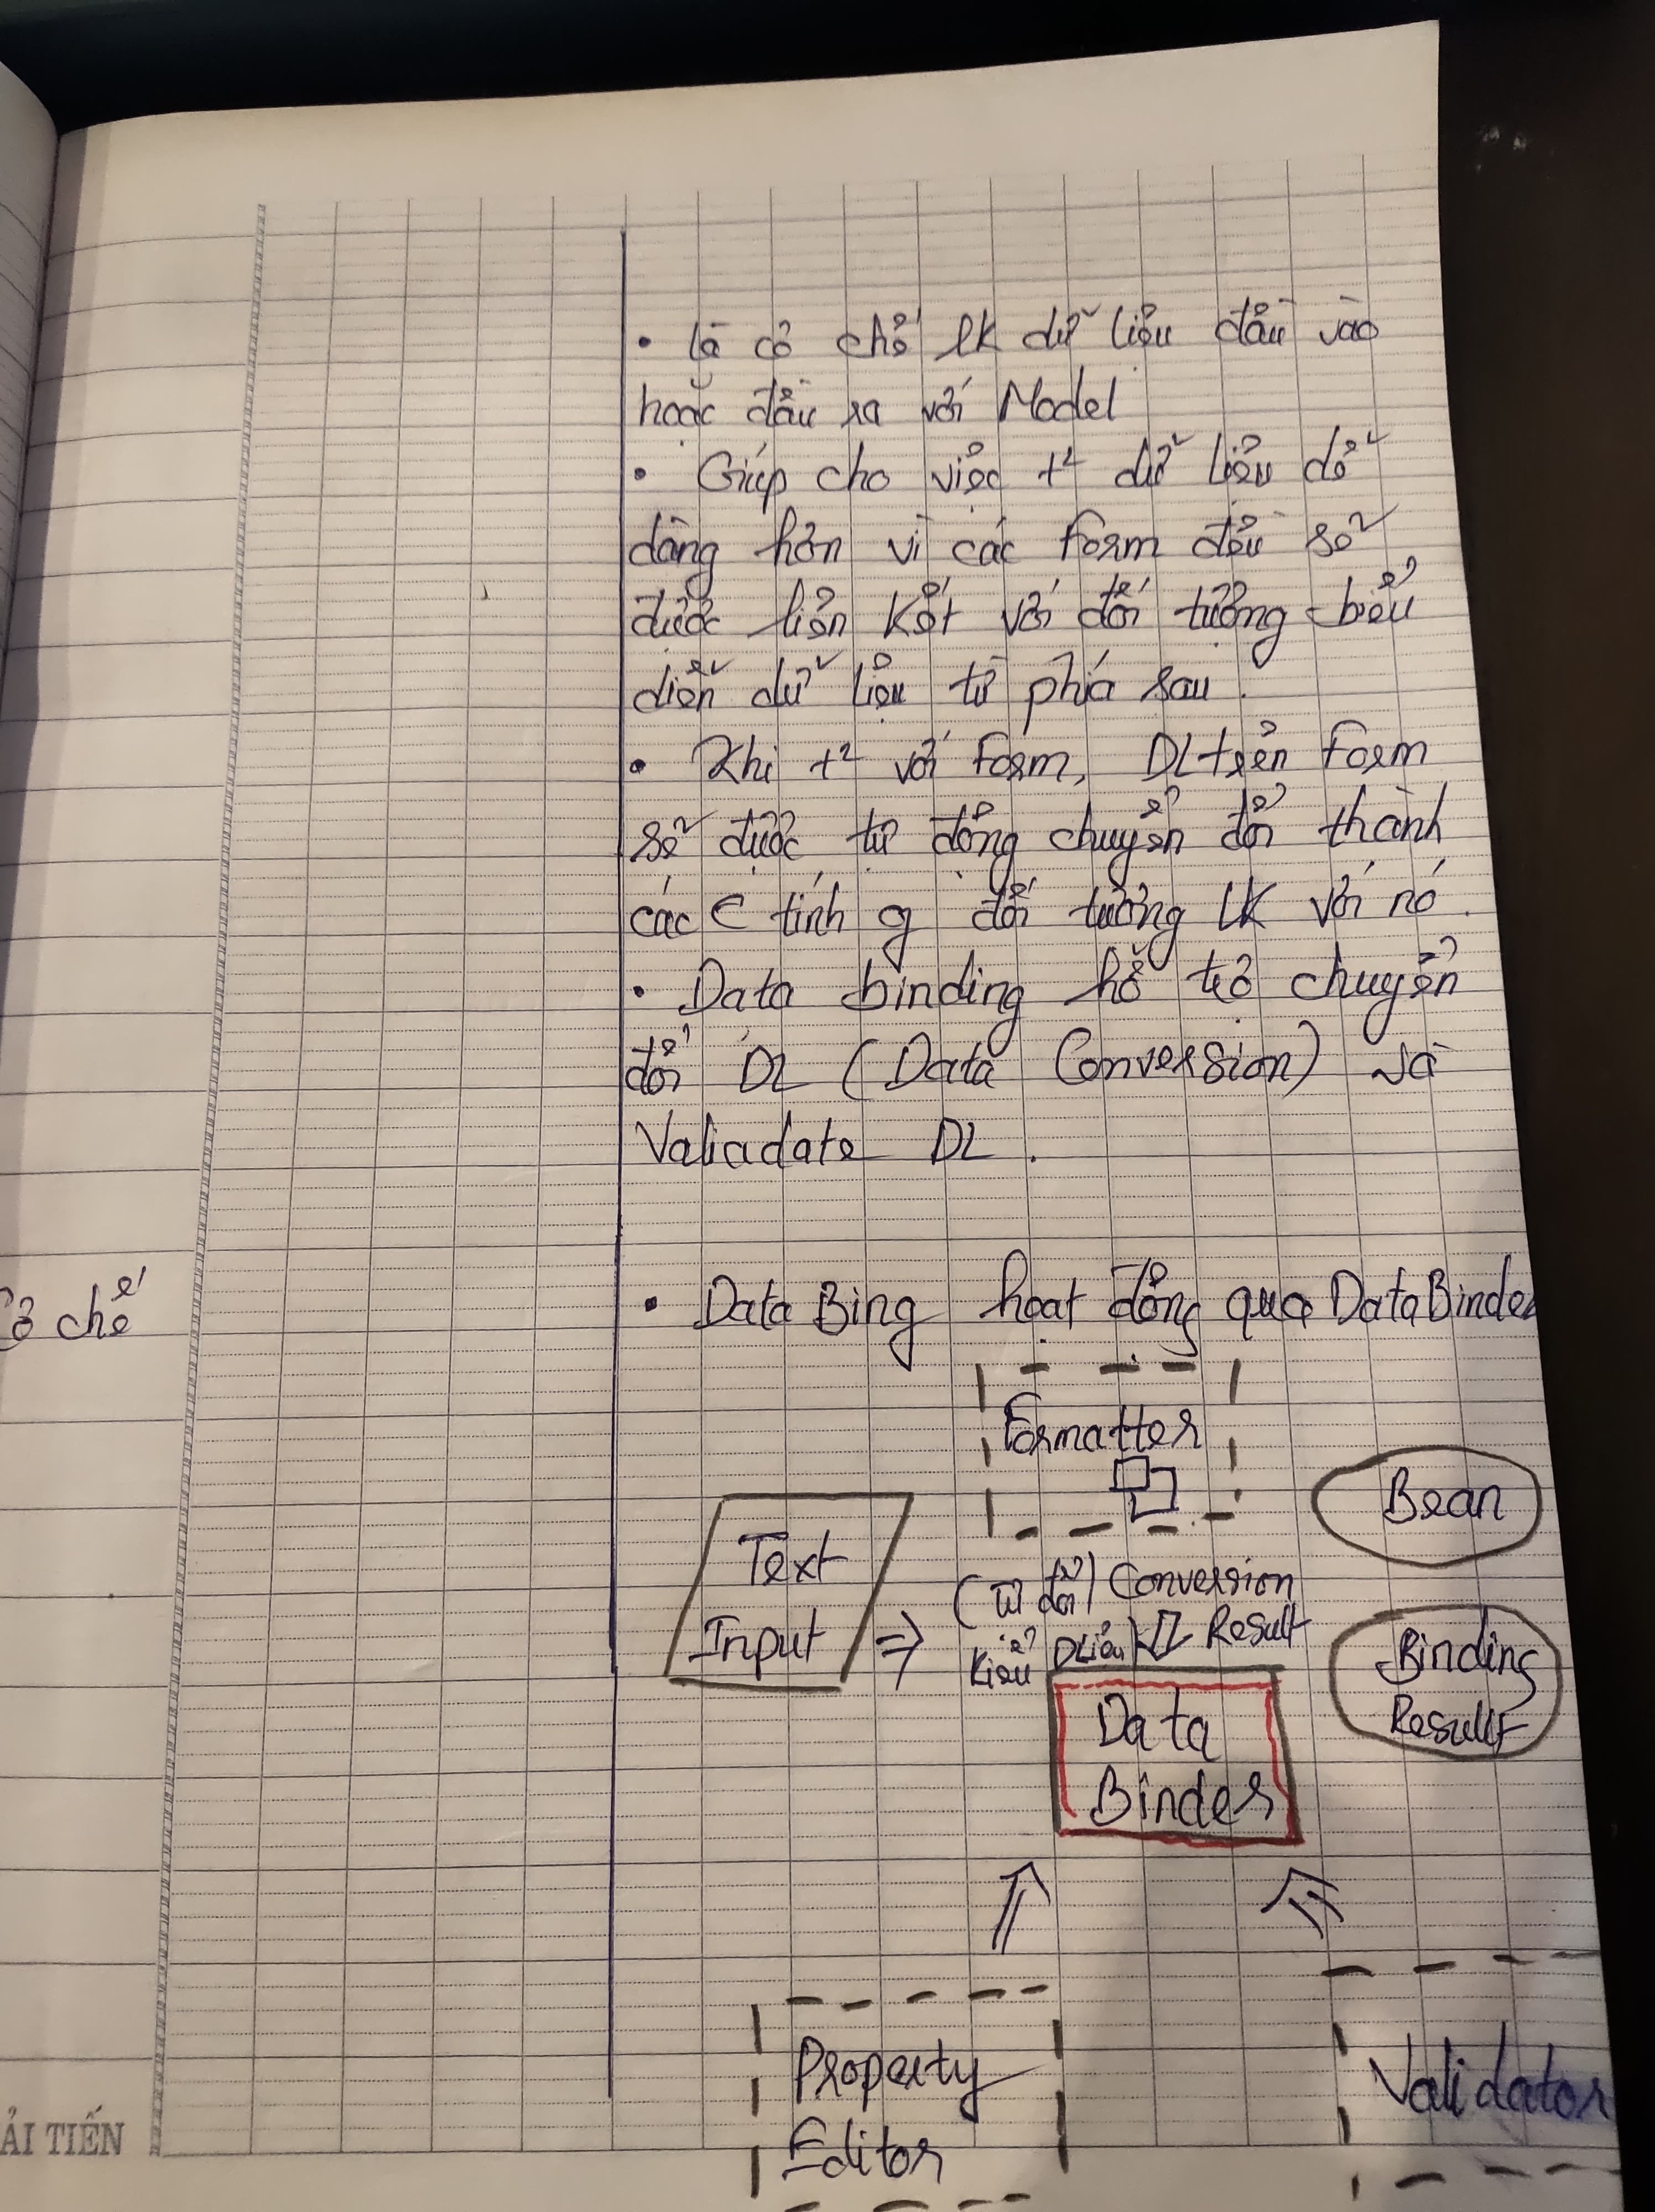 • là cơ chế lk dữ liệu đầu vào
hoặc đầu ra với Model
• Giúp cho việc t² dữ liệu dễ
dàng hơn vì các Form đều sẽ
được liên kết với đối tượng biểu
diễn dữ liệu từ phía sau.
• Khi t² với Form, DL trên Form
sẽ được tự động chuyển đổi thành
các € tính g đối tượng LK với nó.
• Data binding hỗ trợ chuyển
đổi DL (Data Conversion) và
Valiadate DL.
Cơ chế
• Data Bing hoạt động qua DataBinder
Formatter
Bean
Text
Input ⇒
(Tự đổi) Conversion
kiểu Dliệu Result
Binding
Result
Data
Binder
Property
Editor
Validator
ẢI TIẾN